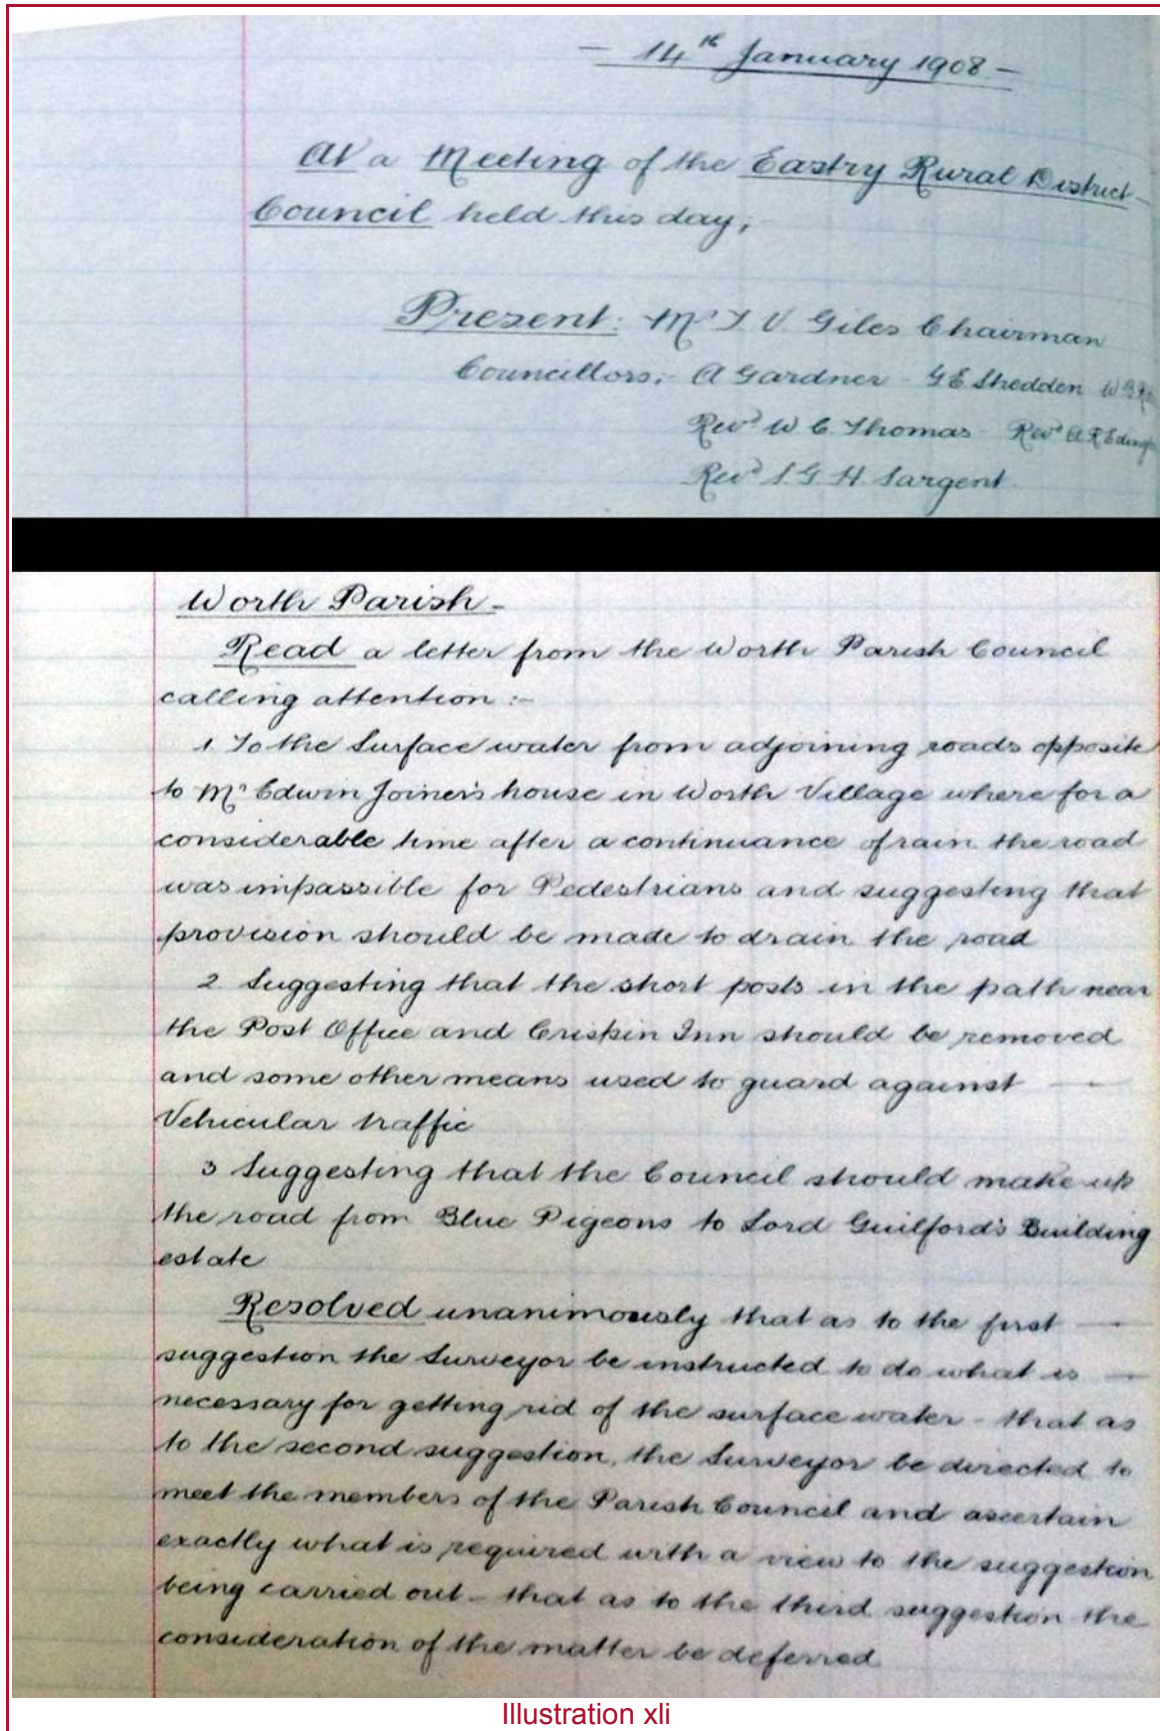 — 14th January 1908 —
At a Meeting of the Eastry Rural District
Council held this day,
Present: Mr T V Giles Chairman
Councillors: A Gardner - G E Shedden
Revd W C Thomas - Revd A R
Revd S G H Sargent
Worth Parish -
Read a letter from the Worth Parish Council
calling attention :-
1 To the Surface water from adjoining roads opposite
to Mr Edwin Joiner's house in Worth Village where for a
considerable time after a continuance of rain the road
was impassible for Pedestrians and suggesting that
provision should be made to drain the road
2 Suggesting that the short posts in the path near
the Post Office and Crispin Inn should be removed
and some other means used to guard against —
Vehicular traffic
3 Suggesting that the Council should make up
the road from Blue Pigeons to Lord Guilford's Building
estate
Resolved unanimously that as to the first —
suggestion the Surveyor be instructed to do what is —
necessary for getting rid of the surface water - that as
to the second suggestion, the Surveyor be directed to
meet the members of the Parish Council and ascertain
exactly what is required with a view to the suggestion
being carried out - that as to the third suggestion the
consideration of the matter be deferred
Illustration xli